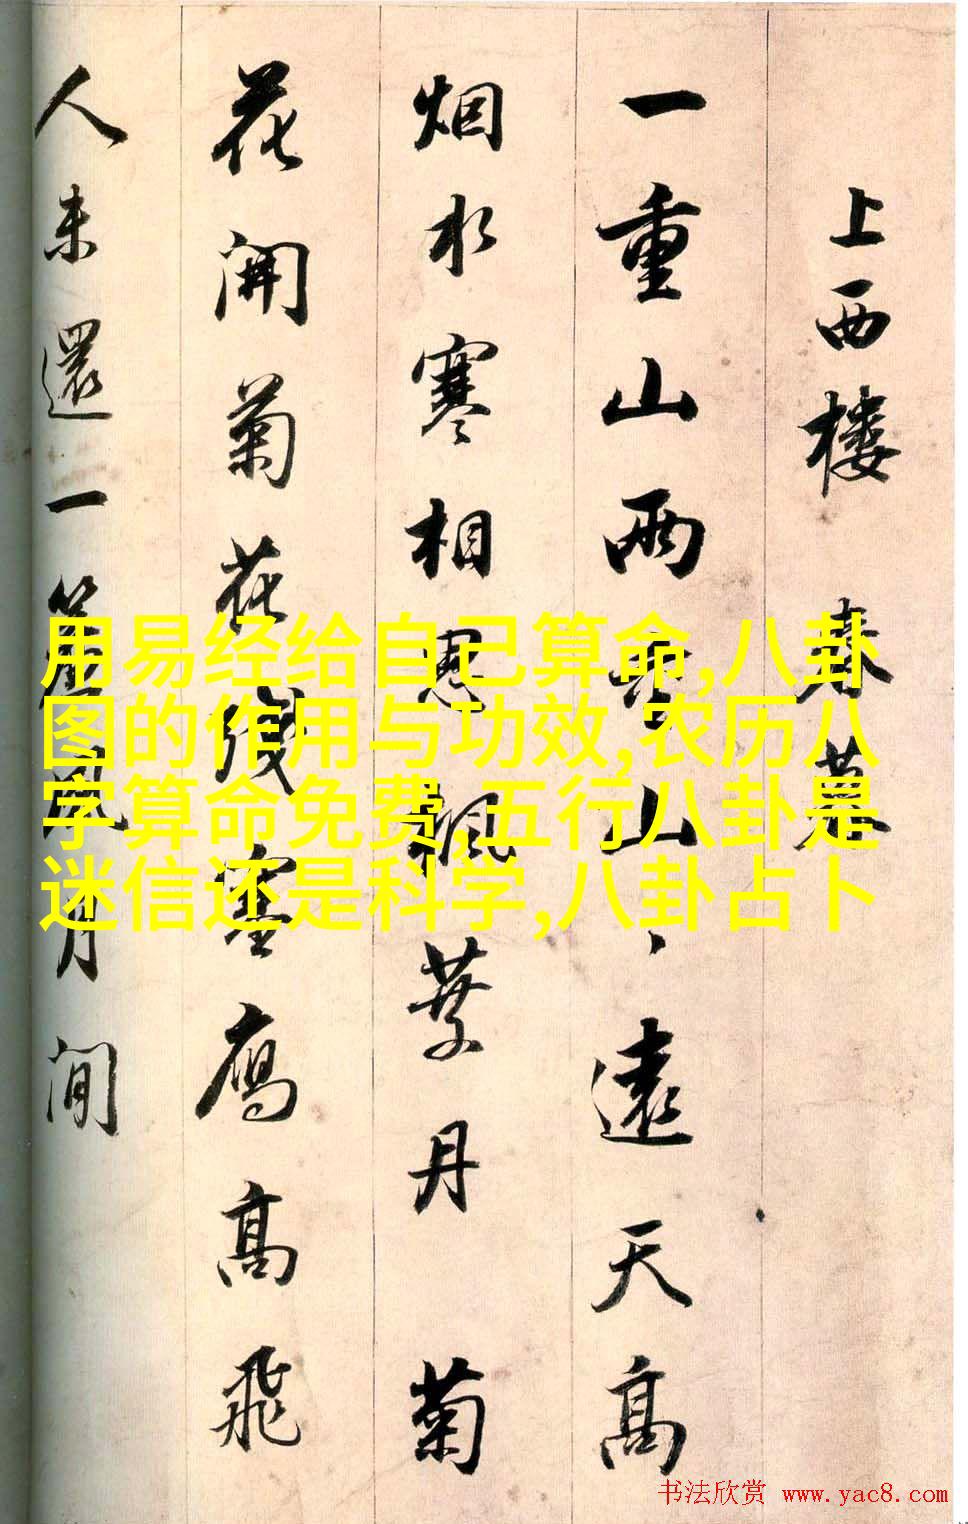 上西楼 暮
一重山兩重山、遠天高
烟水寒相思楓葉丹菊
花開菊花殘塞鴈高飛
人未還一簾風月閒
用易经给自己算命,八卦
图的作用与功效,农历八
字算命免费,五行八卦是
迷信还是科学,八卦占卜
书法欣赏 www.yac8.com